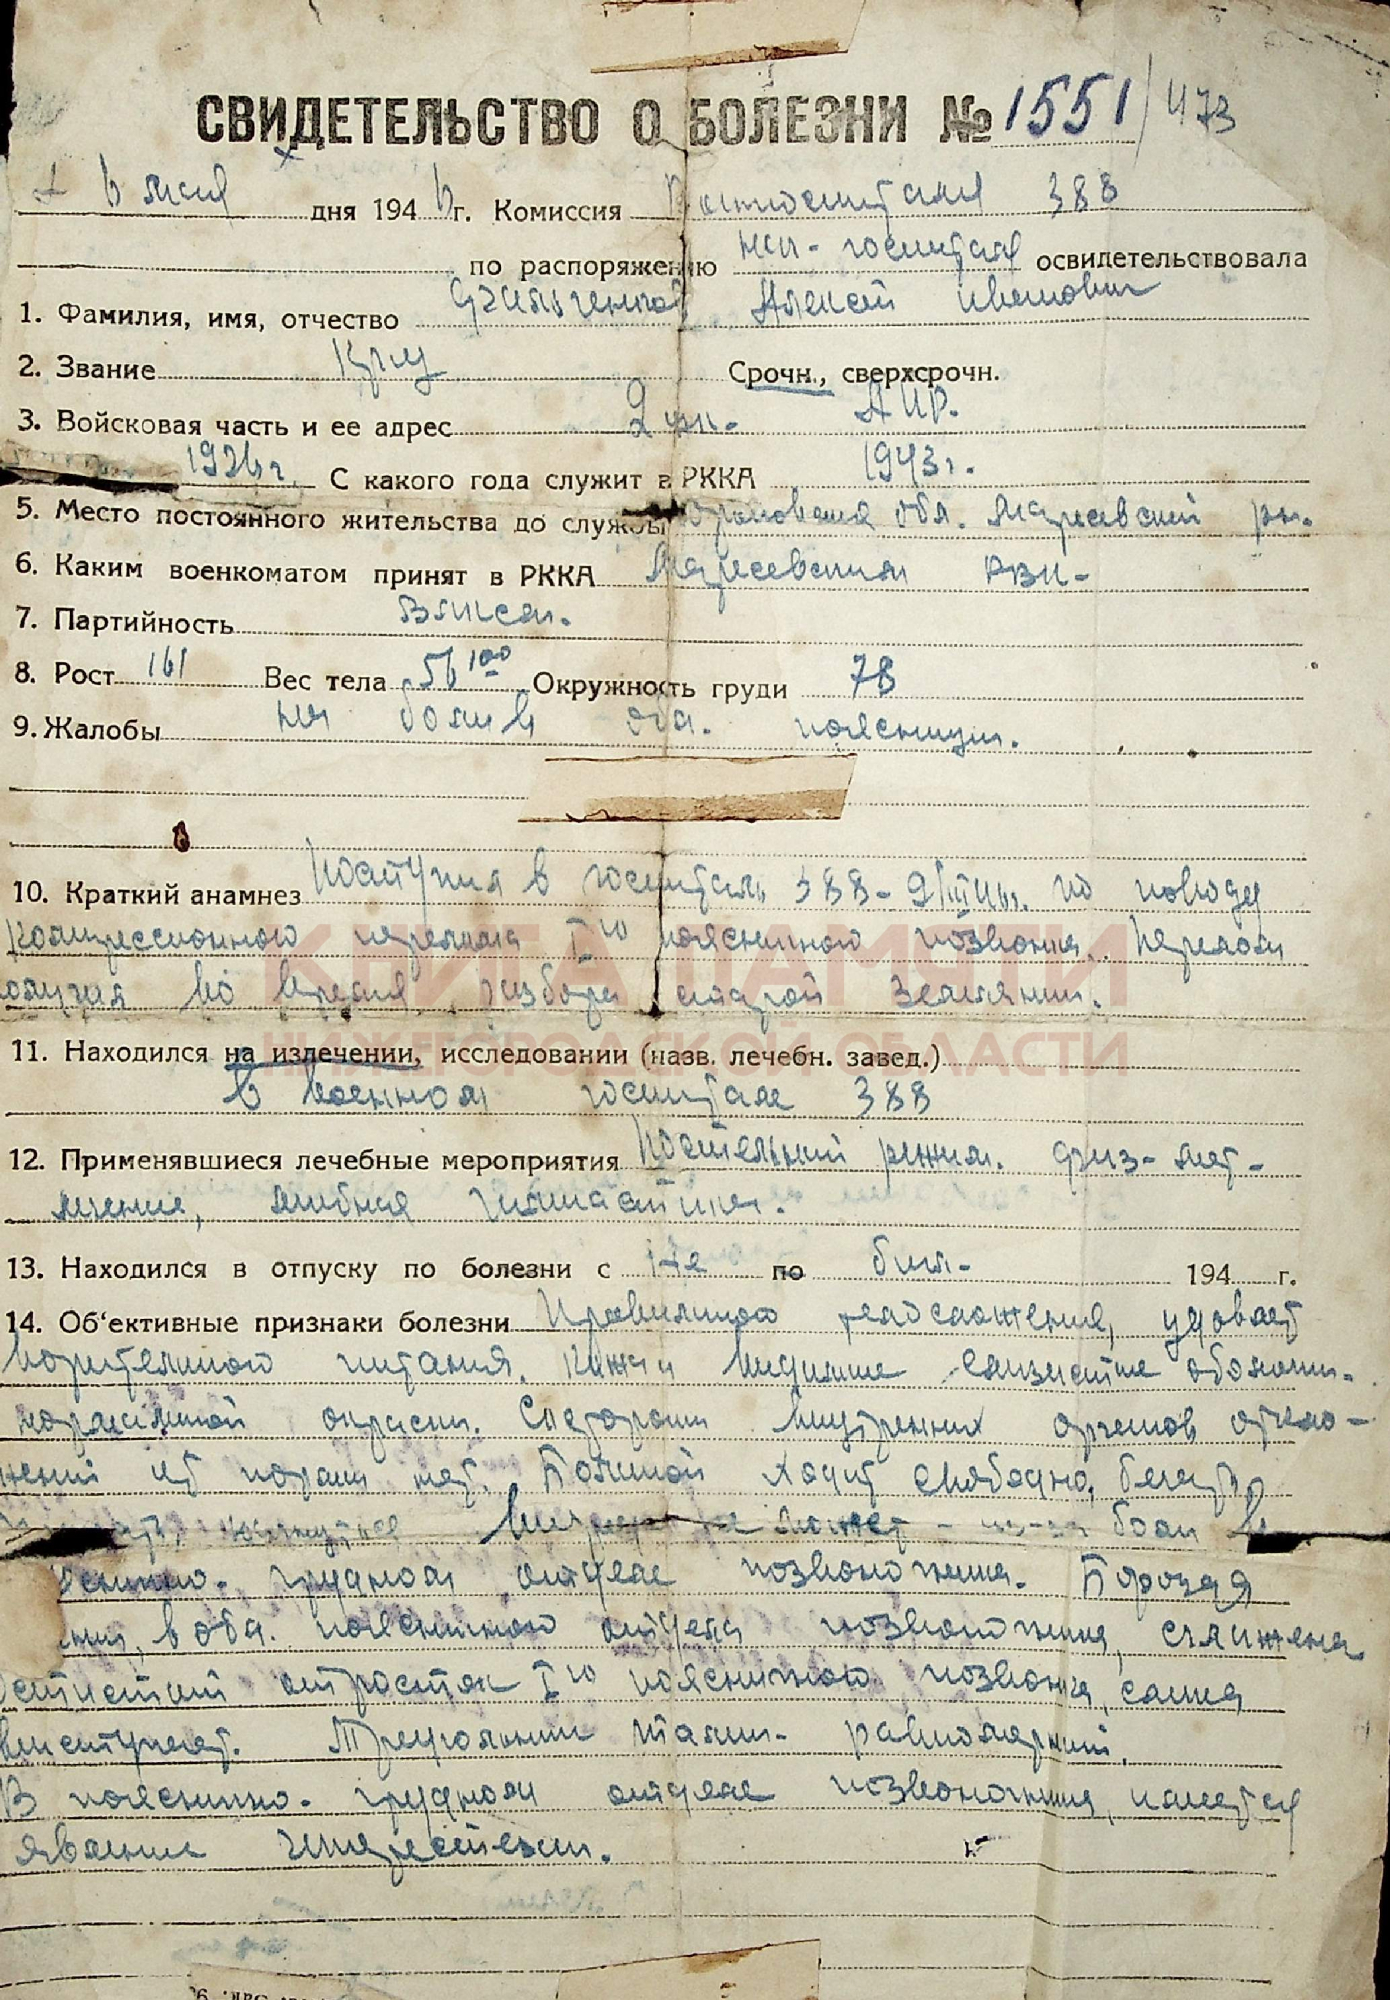 СВИДЕТЕЛЬСТВО О БОЛЕЗНИ № 1551/473
6 мая дня 1946 г. Комиссия госпиталя 388
по распоряжению нач. госпиталя освидетельствовала
1. Фамилия, имя, отчество Алексей Иванович
2. Звание Кр-ц Срочн., сверхсрочн.
3. Войсковая часть и ее адрес 2 АИР.
1926 г. С какого года служит в РККА 1943 г.
5. Место постоянного жительства до службы обл. Маресевский р-н.
6. Каким военкоматом принят в РККА Маресевским РВК
7. Партийность ВЛКСМ.
8. Рост 161 Вес тела 56 100 Окружность груди 78
9. Жалобы на боли в обл. поясницы.
10. Краткий анамнез Поступил в госпиталь 388 по поводу
компрессионного перелома I го поясничного позвонка. Перелом
получил во время разбора старой землянки.
КНИГА ПАМЯТИ
НИЖЕГОРОДСКОЙ ОБЛАСТИ
11. Находился на излечении, исследовании (назв. лечебн. завед.)
в военном госпитале 388
12. Применявшиеся лечебные мероприятия Постельный режим. физ-мет-
лечение, лечебная гимнастика.
13. Находился в отпуску по болезни с не по был 194 г.
14. Об'ективные признаки болезни Правильного телосложения, удовлет
ворительного питания. Кожа и видимые слизистые оболочки
нормальной окраски. Со стороны внутренних органов откло-
нений от нормы нет. Больной ходит свободно, бегать,
не может - из-за боли в
грудном отделе позвоночника. Борозда
в обл. поясничного отдела позвоночника, сглажена
остистый отросток I го поясничного позвонка, слегка
выступает. Треугольники талии равномерный.
В пояснично-грудном отделе позвоночника, имеется
явления гиперестезии.